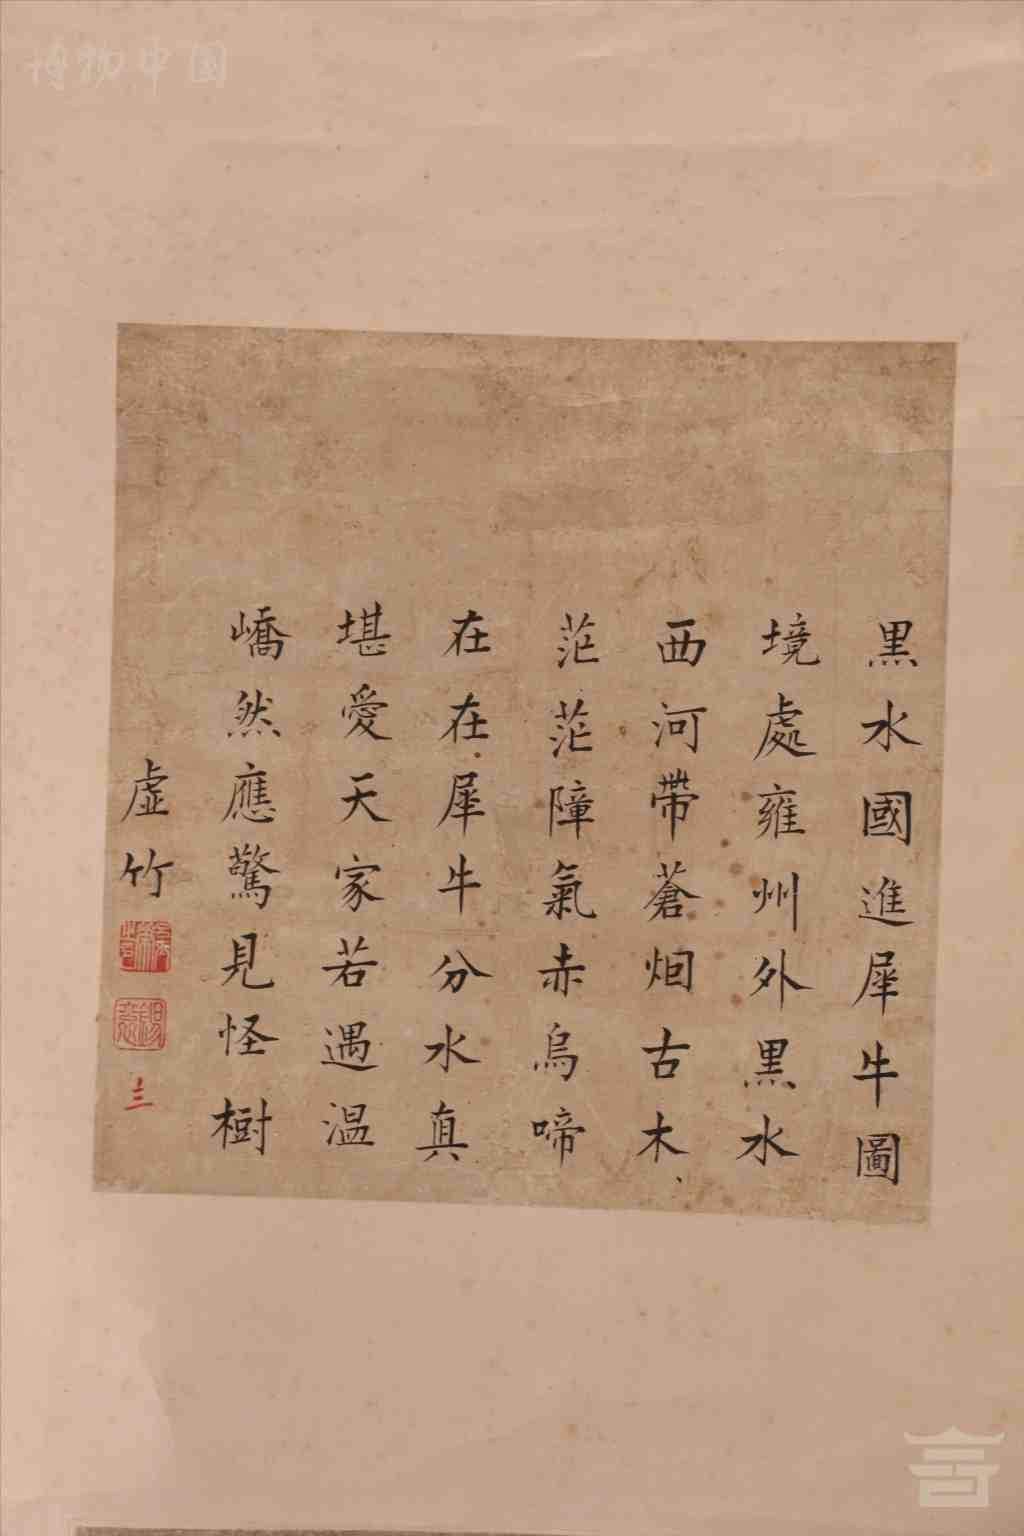 博物中國
黒水國進犀牛圖
境處雍州外黒水
西河帶蒼烟古木
茫茫障氣赤烏啼
在在犀牛分水真
堪愛天家若遇温
嶠然應驚見怪樹
虛竹
三